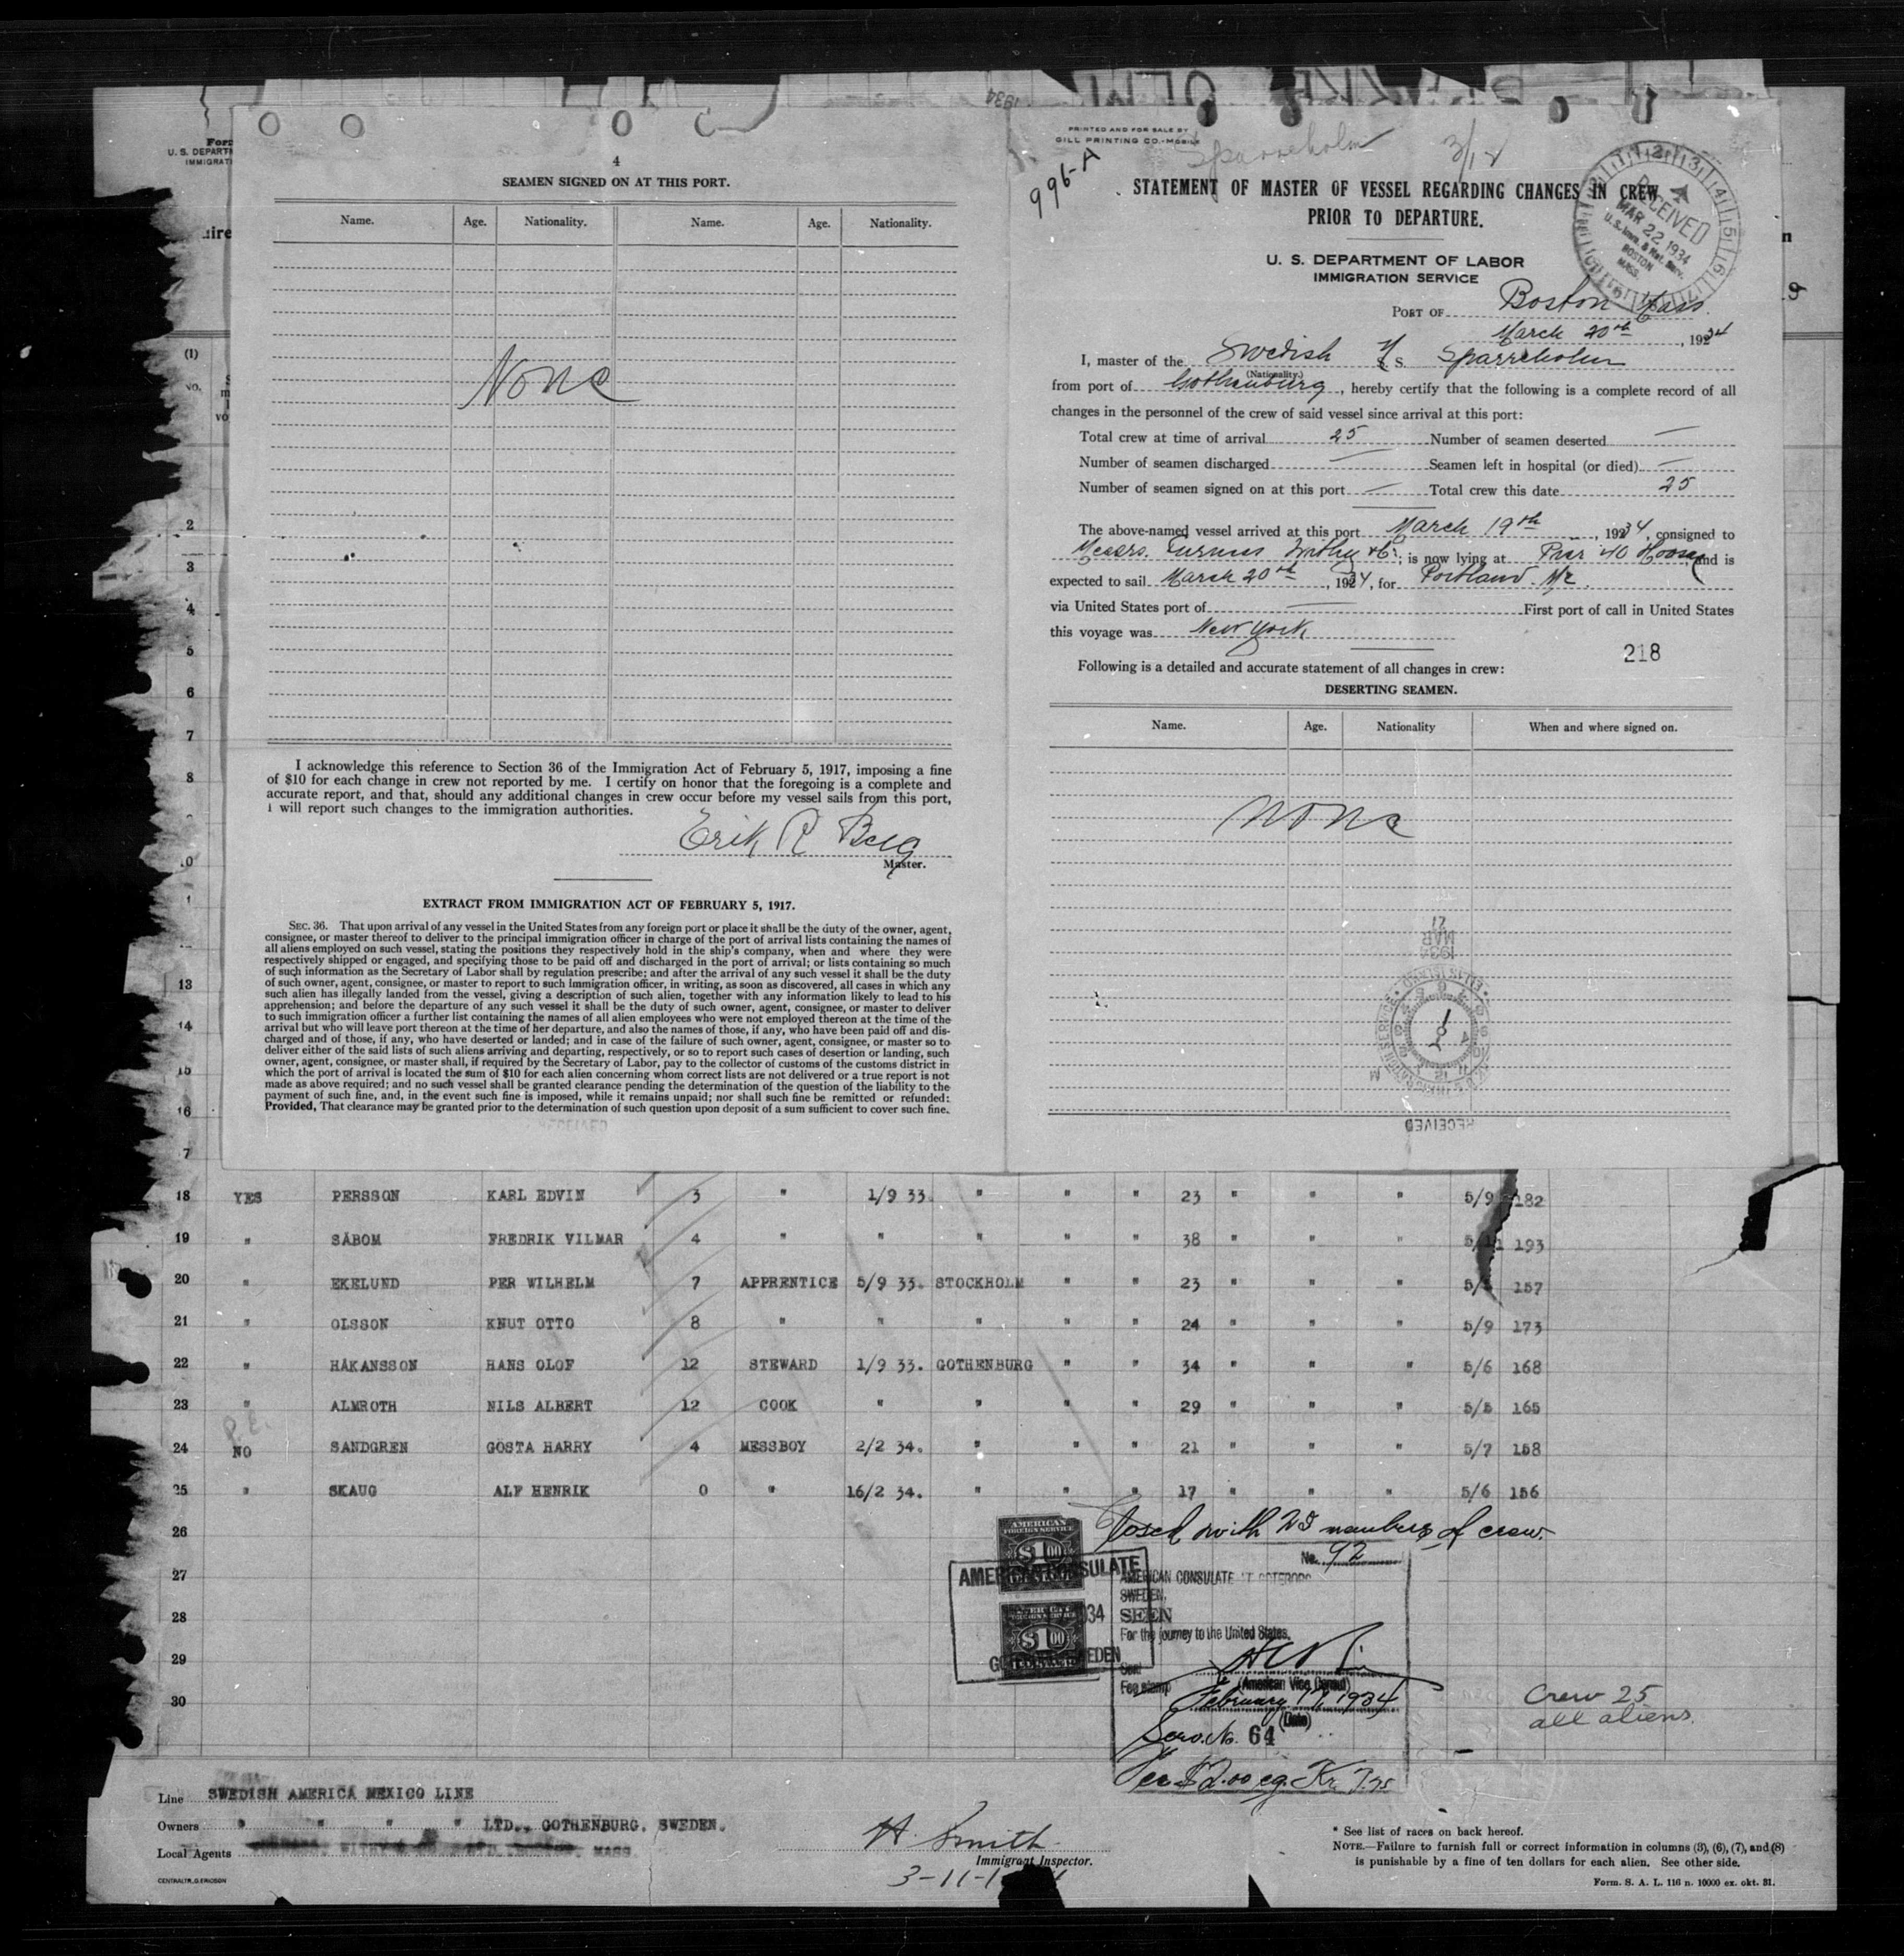 Form
U. S. DEPART
IMMIGRAT
4
SEAMEN SIGNED ON AT THIS PORT.
Name. Age. Nationality. Name. Age. Nationality.
None
I acknowledge this reference to Section 36 of the Immigration Act of February 5, 1917, imposing a fine
of $10 for each change in crew not reported by me. I certify on honor that the foregoing is a complete and
accurate report, and that, should any additional changes in crew occur before my vessel sails from this port,
I will report such changes to the immigration authorities.
Erik R Berg
Master.
EXTRACT FROM IMMIGRATION ACT OF FEBRUARY 5, 1917.
SEC. 36. That upon arrival of any vessel in the United States from any foreign port or place it shall be the duty of the owner, agent,
consignee, or master thereof to deliver to the principal immigration officer in charge of the port of arrival lists containing the names of
all aliens employed on such vessel, stating the positions they respectively hold in the ship's company, when and where they were
respectively shipped or engaged, and specifying those to be paid off and discharged in the port of arrival; or lists containing so much
of such information as the Secretary of Labor shall by regulation prescribe; and after the arrival of any such vessel it shall be the duty
of such owner, agent, consignee, or master to report to such immigration officer, in writing, as soon as discovered, all cases in which any
such alien has illegally landed from the vessel, giving a description of such alien, together with any information likely to lead to his
apprehension; and before the departure of any such vessel it shall be the duty of such owner, agent, consignee, or master to deliver
to such immigration officer a further list containing the names of all alien employees who were not employed thereon at the time of the
arrival but who will leave port thereon at the time of her departure, and also the names of those, if any, who have been paid off and dis-
charged and of those, if any, who have deserted or landed; and in case of the failure of such owner, agent, consignee, or master so to
deliver either of the said lists of such aliens arriving and departing, respectively, or so to report such cases of desertion or landing, such
owner, agent, consignee, or master shall, if required by the Secretary of Labor, pay to the collector of customs of the customs district in
which the port of arrival is located the sum of $10 for each alien concerning whom correct lists are not delivered or a true report is not
made as above required; and no such vessel shall be granted clearance pending the determination of the question of the liability to the
payment of such fine, and, in the event such fine is imposed, while it remains unpaid; nor shall such fine be remitted or refunded:
Provided, That clearance may be granted prior to the determination of such question upon deposit of a sum sufficient to cover such fine.
PRINTED AND FOR SALE BY
GILL PRINTING CO.-MOBILE
Sparreholm
996-A
STATEMENT OF MASTER OF VESSEL REGARDING CHANGES IN CREW
PRIOR TO DEPARTURE.
RECEIVED
MAR 22 1934
U.S. Imm. & Nat. Serv.
BOSTON
MASS.
U. S. DEPARTMENT OF LABOR
IMMIGRATION SERVICE
PORT OF Boston Mass.
March 20th, 1934
I, master of the Swedish M/S. Sparreholm
(Nationality.)
from port of Gothenburg, hereby certify that the following is a complete record of all
changes in the personnel of the crew of said vessel since arrival at this port:
Total crew at time of arrival 25 Number of seamen deserted —
Number of seamen discharged — Seamen left in hospital (or died) —
Number of seamen signed on at this port — Total crew this date 25
The above-named vessel arrived at this port March 19th, 1934, consigned to
Messrs. Furness Withy & Co; is now lying at Pier 40 Hoosac and is
expected to sail March 20th, 1934, for Portland. Me.
via United States port of — First port of call in United States
this voyage was New York
218
Following is a detailed and accurate statement of all changes in crew:
DESERTING SEAMEN.
Name. Age. Nationality When and where signed on.
None
1934
MAR
27
RECEIVED
18 YES PERSSON KARL EDVIN 3 " 1/9 33. " " " 23 " " " 5/9 182
19 " SÄBOM FREDRIK VILMAR 4 " " " " " 38 " " " 193
20 " EKELUND PER WILHELM 7 APPRENTICE 5/9 33. STOCKHOLM " " 23 " " " 157
21 " OLSSON KNUT OTTO 8 " " " " " 24 " " " 5/9 173
22 " HÅKANSSON HANS OLOF 12 STEWARD 1/9 33. GOTHENBURG " " 34 " " " 5/6 168
23 " ALMROTH NILS ALBERT 12 COOK " " " " 29 " " " 5/5 165
24 NO SANDGREN GÖSTA HARRY 4 MESSBOY 2/2 34. " " " 21 " " " 5/7 158
25 " SKAUG ALF HENRIK 0 " 16/2 34. " " " 17 " " " 5/6 156
26
27
28
29
30
Closed with 25 members of crew.
No. 92
AMERICAN FOREIGN SERVICE $1.00
AMERICAN CONSULATE
AMERICAN CONSULATE AT GOTEBORG
SWEDEN.
SEEN
For the journey to the United States.
Seal
(American Vice Consul)
Fee stamp
February 17, 1934
(Date)
Serv. No. 64
Fee $2.00 eq. Kr.
Crew 25
all aliens.
Line SWEDISH AMERICA MEXICO LINE
Owners " " " " LTD., GOTHENBURG, SWEDEN.
Local Agents MASS
CENTRALTR., G. ERICSON
H. Smith
Immigrant Inspector.
3-11-
* See list of races on back hereof.
NOTE.—Failure to furnish full or correct information in columns (3), (6), (7), and (8)
is punishable by a fine of ten dollars for each alien. See other side.
Form. S. A. L. 116 n. 10000 ex. okt. 31.